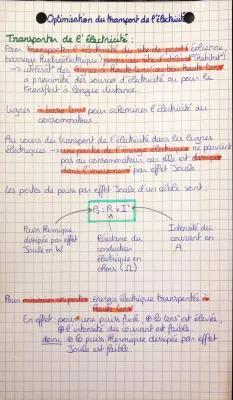 Optimisation du transport de l'électricité
Transporter de l'électricité :
Pour transporter l'électricité du site de (éolienne,
barrage hydroélectrique) jusqu'au
→ utilise des lignes à haute tension
à proximité des sources d'électricité ou pour le
transport à longue distance.
Lignes à basse tens° pour acheminer l'électricité au
consommateur.
Au cours du transport de l'électricité dans les lignes
électriques → une partie de l'énergie électrique ne parvient
pas au consommateur car elle est dissipée
dans l'environnement par effet Joule.
Les pertes de puiss par effet Joule d'un câble sont :
PJ = R × I²
Puiss thermique
dissipée par effet
Joule en W
Résistance du
conducteur
électrique en
ohms (Ω)
Intensité du
courant en
A
Pour minimiser ces pertes : énergie électrique transportée à
haute tens°
En effet, pour une puiss fixée, ⊕ la tens° est élevée,
⊕ l'intensité du courant est faible.
donc : ⊕ la puiss thermique dissipée par effet
Joule est faible.